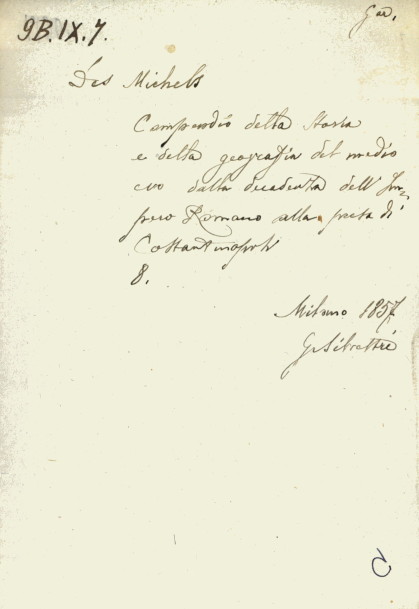 9B.IX.7.
Des Michels
Compendio della Storia
e della geografia del medio
evo dalla decadenza dell' Im-
pero Romano alla presa di
Costantinopoli
8.
Milano 1857